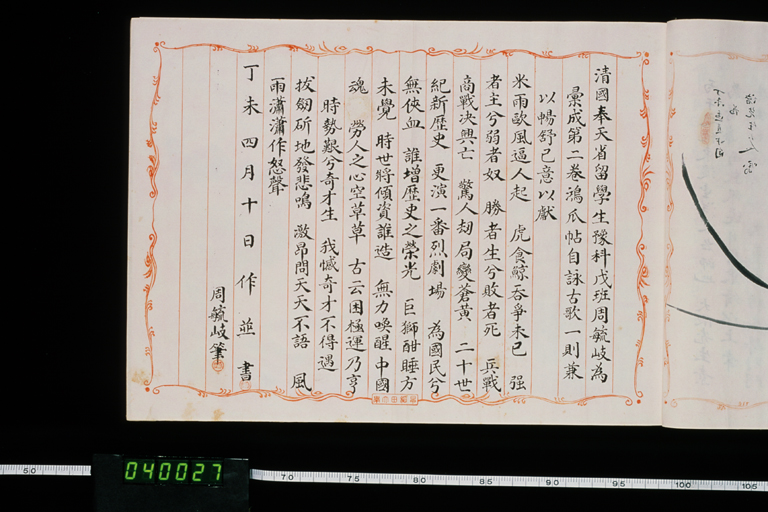 清國奉天省留學生豫科戊班周毓岐為
彙成第二卷鴻爪帖自詠古歌一則兼
以暢舒己意以獻
米雨歐風逼人起 虎食鯨吞爭未已 强
者主兮弱者奴 勝者生兮敗者死 兵戰
商戰决興亡 驚人刼局變蒼黃 二十世
紀新歷史 更演一番烈劇場 為國民兮
無俠血 誰增歷史之榮光 巨獅酣睡方
未覺 時世將傾資誰造 無力喚醒中國
魂 勞人之心空草草 古云困極運乃亨
時勢艱兮奇才生 我憾奇才不得遇
拔劔斫地發悲鳴 激昂問天天不語 風
雨瀟瀟作怒聲
丁未四月十日作並書
周毓岐筆
040027
5.0 7.0 7.5 8.0 8.5 9.0 9.5 10.0 10.5